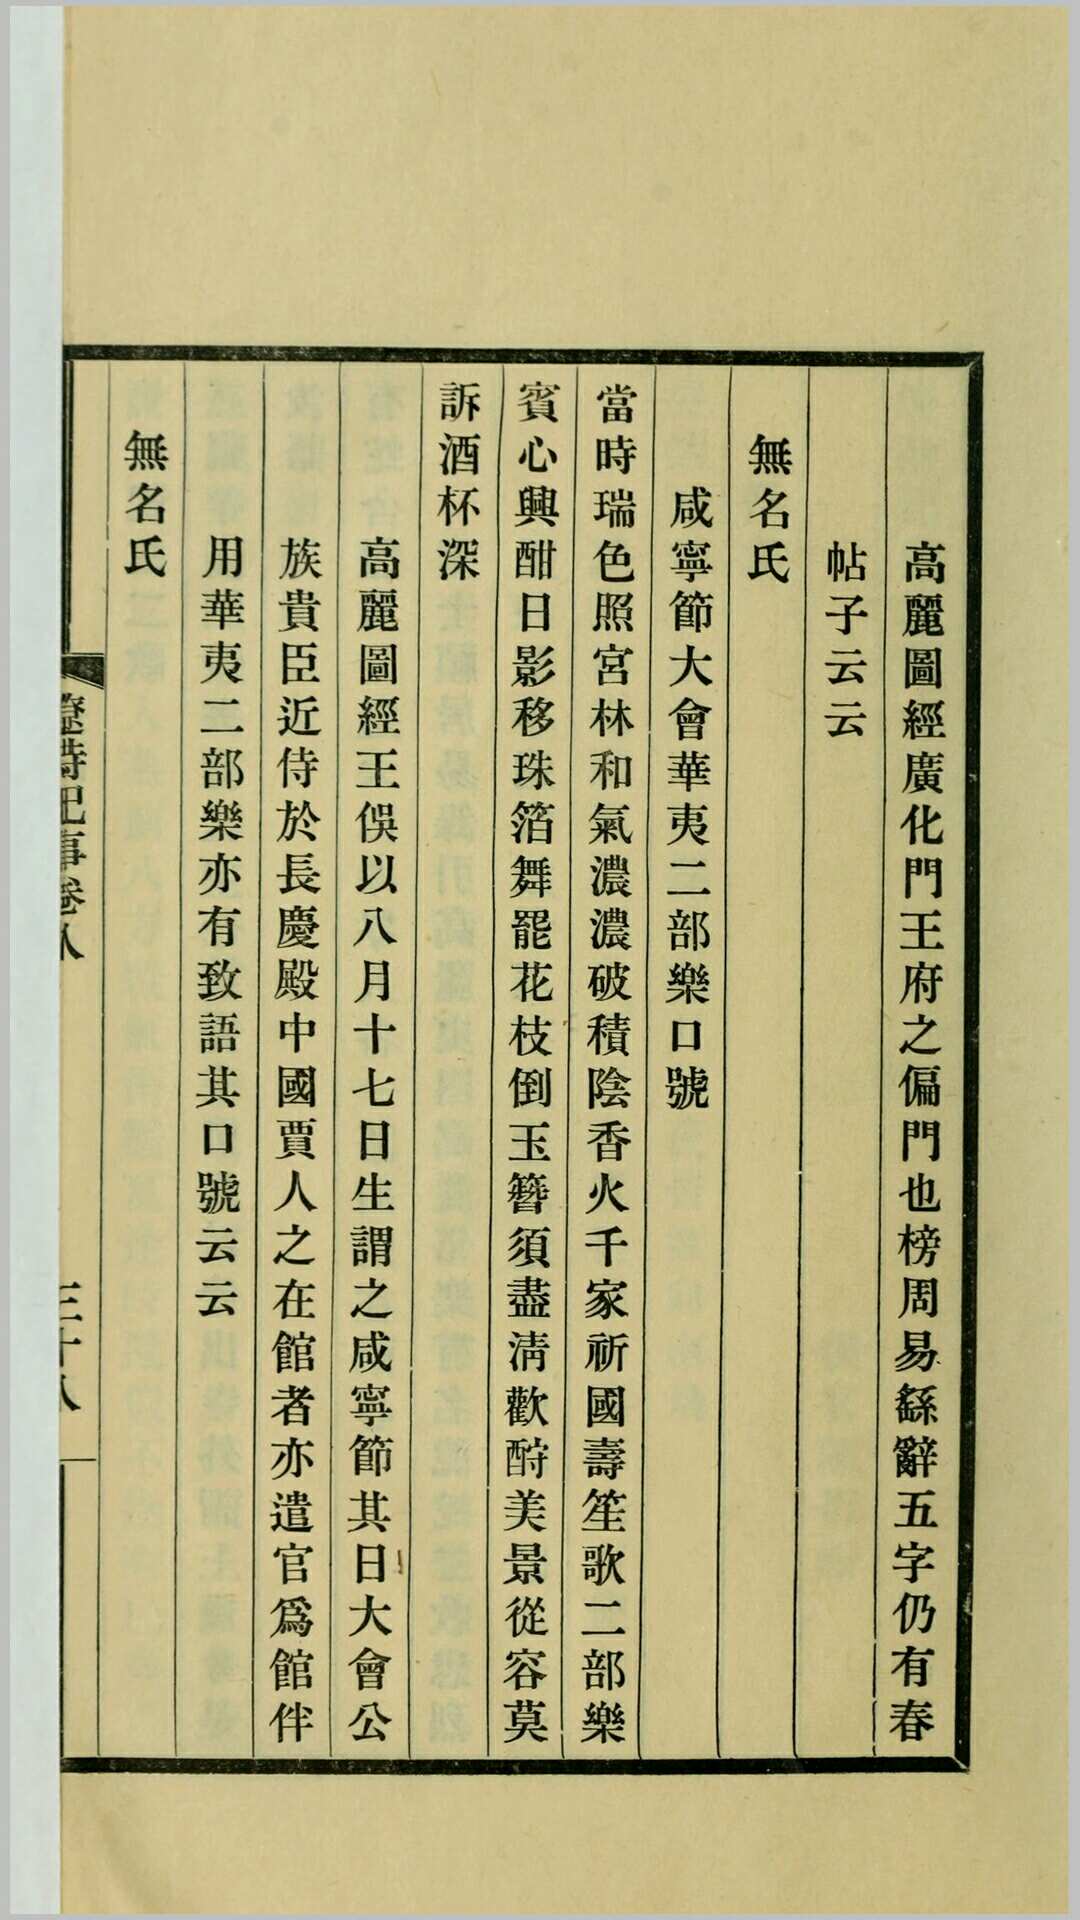 高麗圖經廣化門王府之偏門也榜周易繇辭五字仍有春
帖子云云
無名氏
咸寧節大會華夷二部樂口號
當時瑞色照宮林和氣濃濃破積陰香火千家祈國壽笙歌二部樂
賓心興酣日影移珠箔舞罷花枝倒玉簪須盡淸歡酧美景從容莫
訴酒杯深
高麗圖經王俁以八月十七日生謂之咸寧節其日大會公
族貴臣近侍於長慶殿中國賈人之在館者亦遣官爲館伴
用華夷二部樂亦有致語其口號云云
無名氏
遼詩紀事卷八
三十八